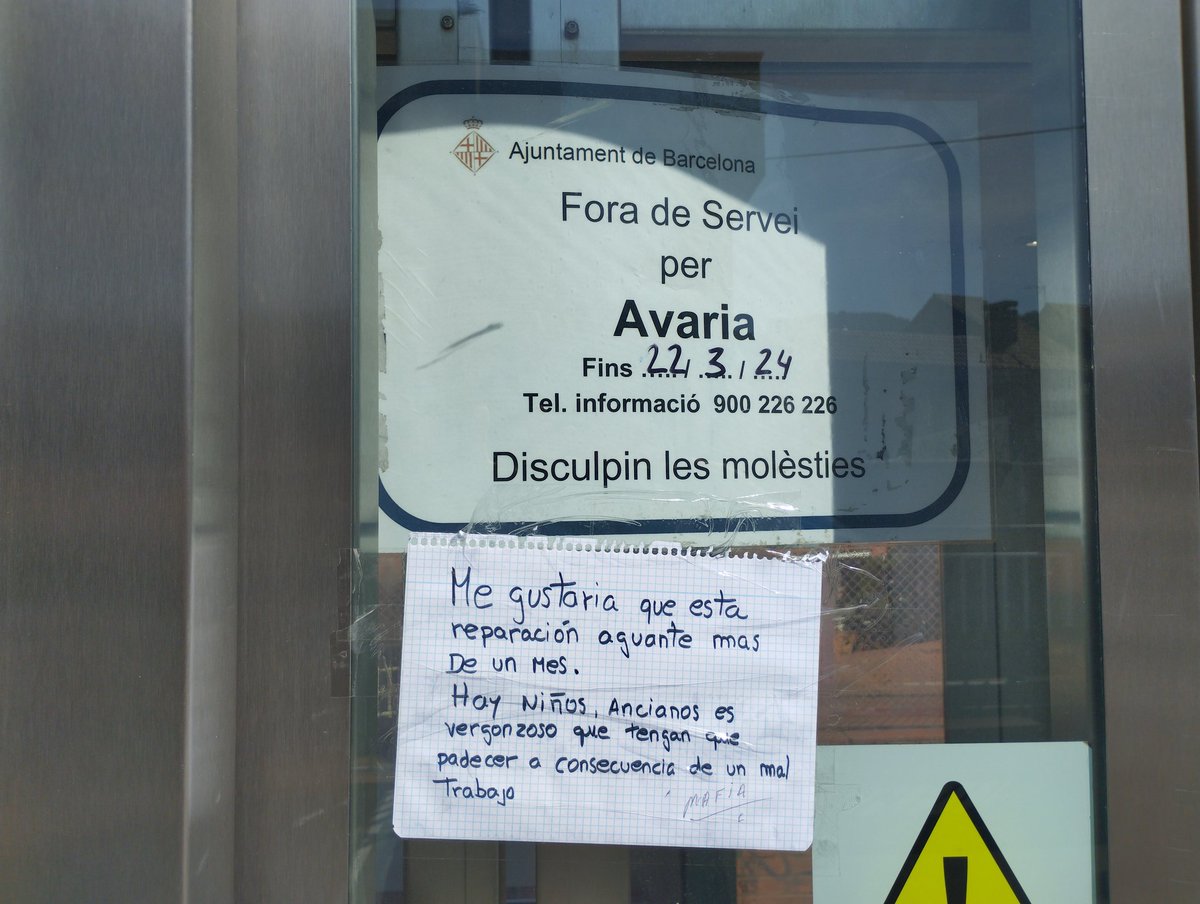 Ajuntament de Barcelona
Fora de Servei
per
Avaria
Fins 22/3/24
Tel. informació 900 226 226
Disculpin les molèsties
Me gustaria que esta
reparación aguante mas
De un mes.
Hay Niños, Ancianos es
vergonzoso que tengan que
padecer a consecuencia de un mal
Trabajo
MAFIA